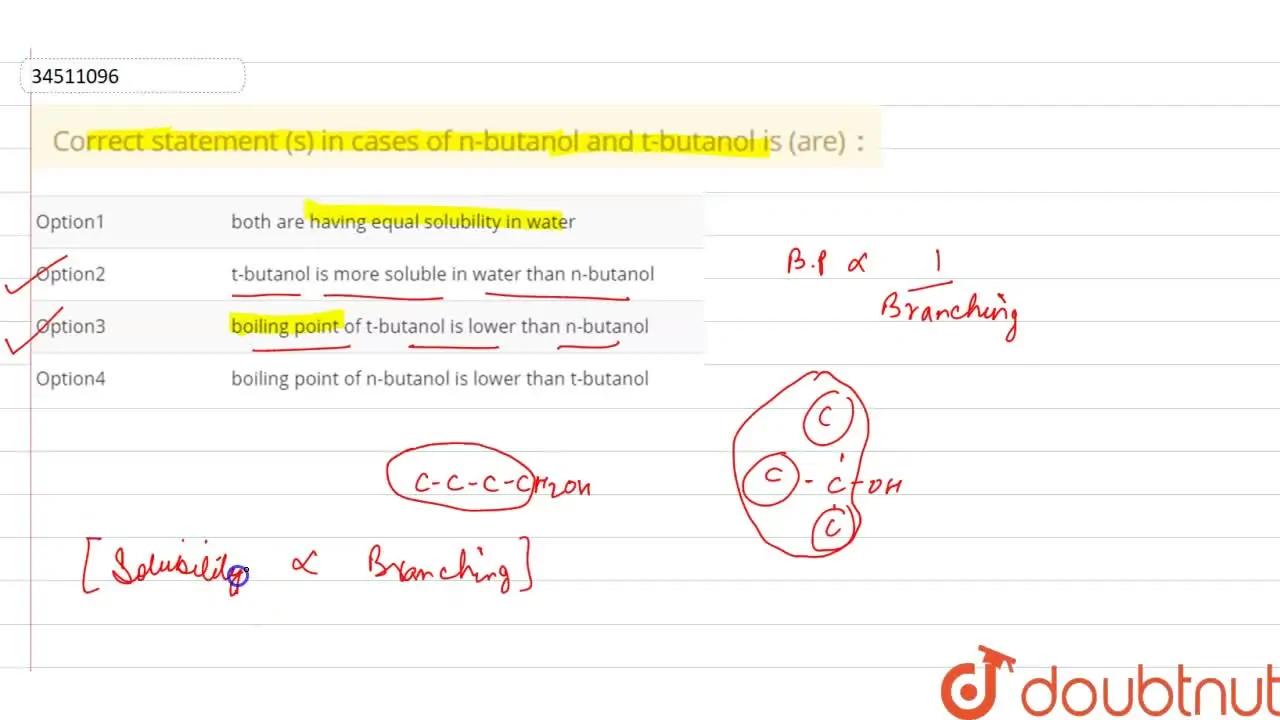 34511096
Correct statement (s) in cases of n-butanol and t-butanol is (are) :
Option1 both are having equal solubility in water
Option2 t-butanol is more soluble in water than n-butanol
Option3 boiling point of t-butanol is lower than n-butanol
Option4 boiling point of n-butanol is lower than t-butanol
B.P ∝ 1
Branching
C
C-C-C-CH2OH
C - C - OH
C
[Solubility ∝ Branching]
doubtnut